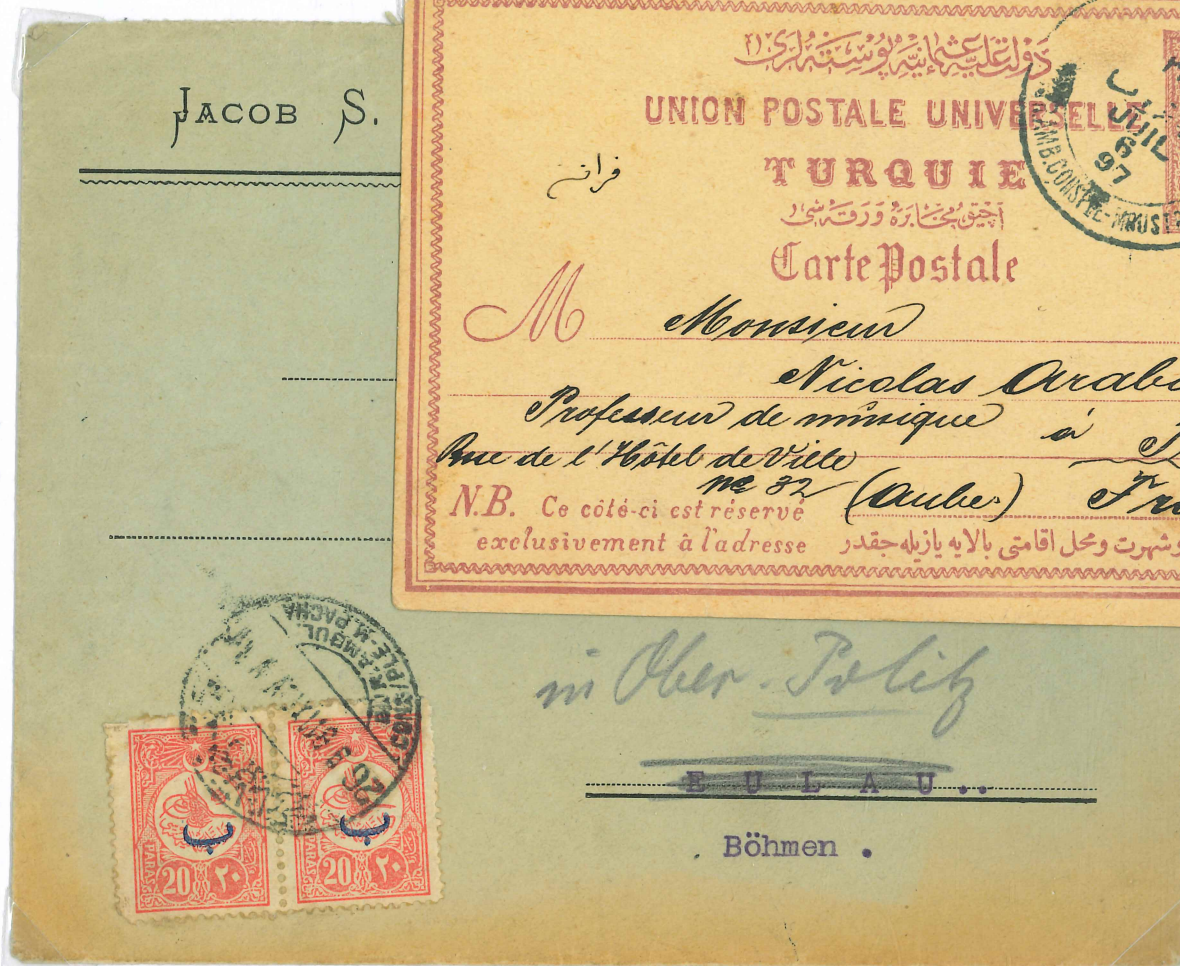 JACOB S.
دولت علیهٔ عثمانیه پوسته لری
UNION POSTALE UNIVERSELLE
TURQUIE
آچیق مخابره ورقه سی
Carte Postale
JUIL
6
97
M Monsieur
Nicolas
Professeur de musique à
Rue de l'Hôtel de Ville
No 32 (Aube)
N.B. Ce côté-ci est réservé
exclusivement à l'adresse
وشهرت ومحل اقامتی بالایه یازیله جقدر
in Ober-Politz
EULAU..
Böhmen.
ب
ب
PARAS 20 ٢٠
20 ٢٠ PARAS